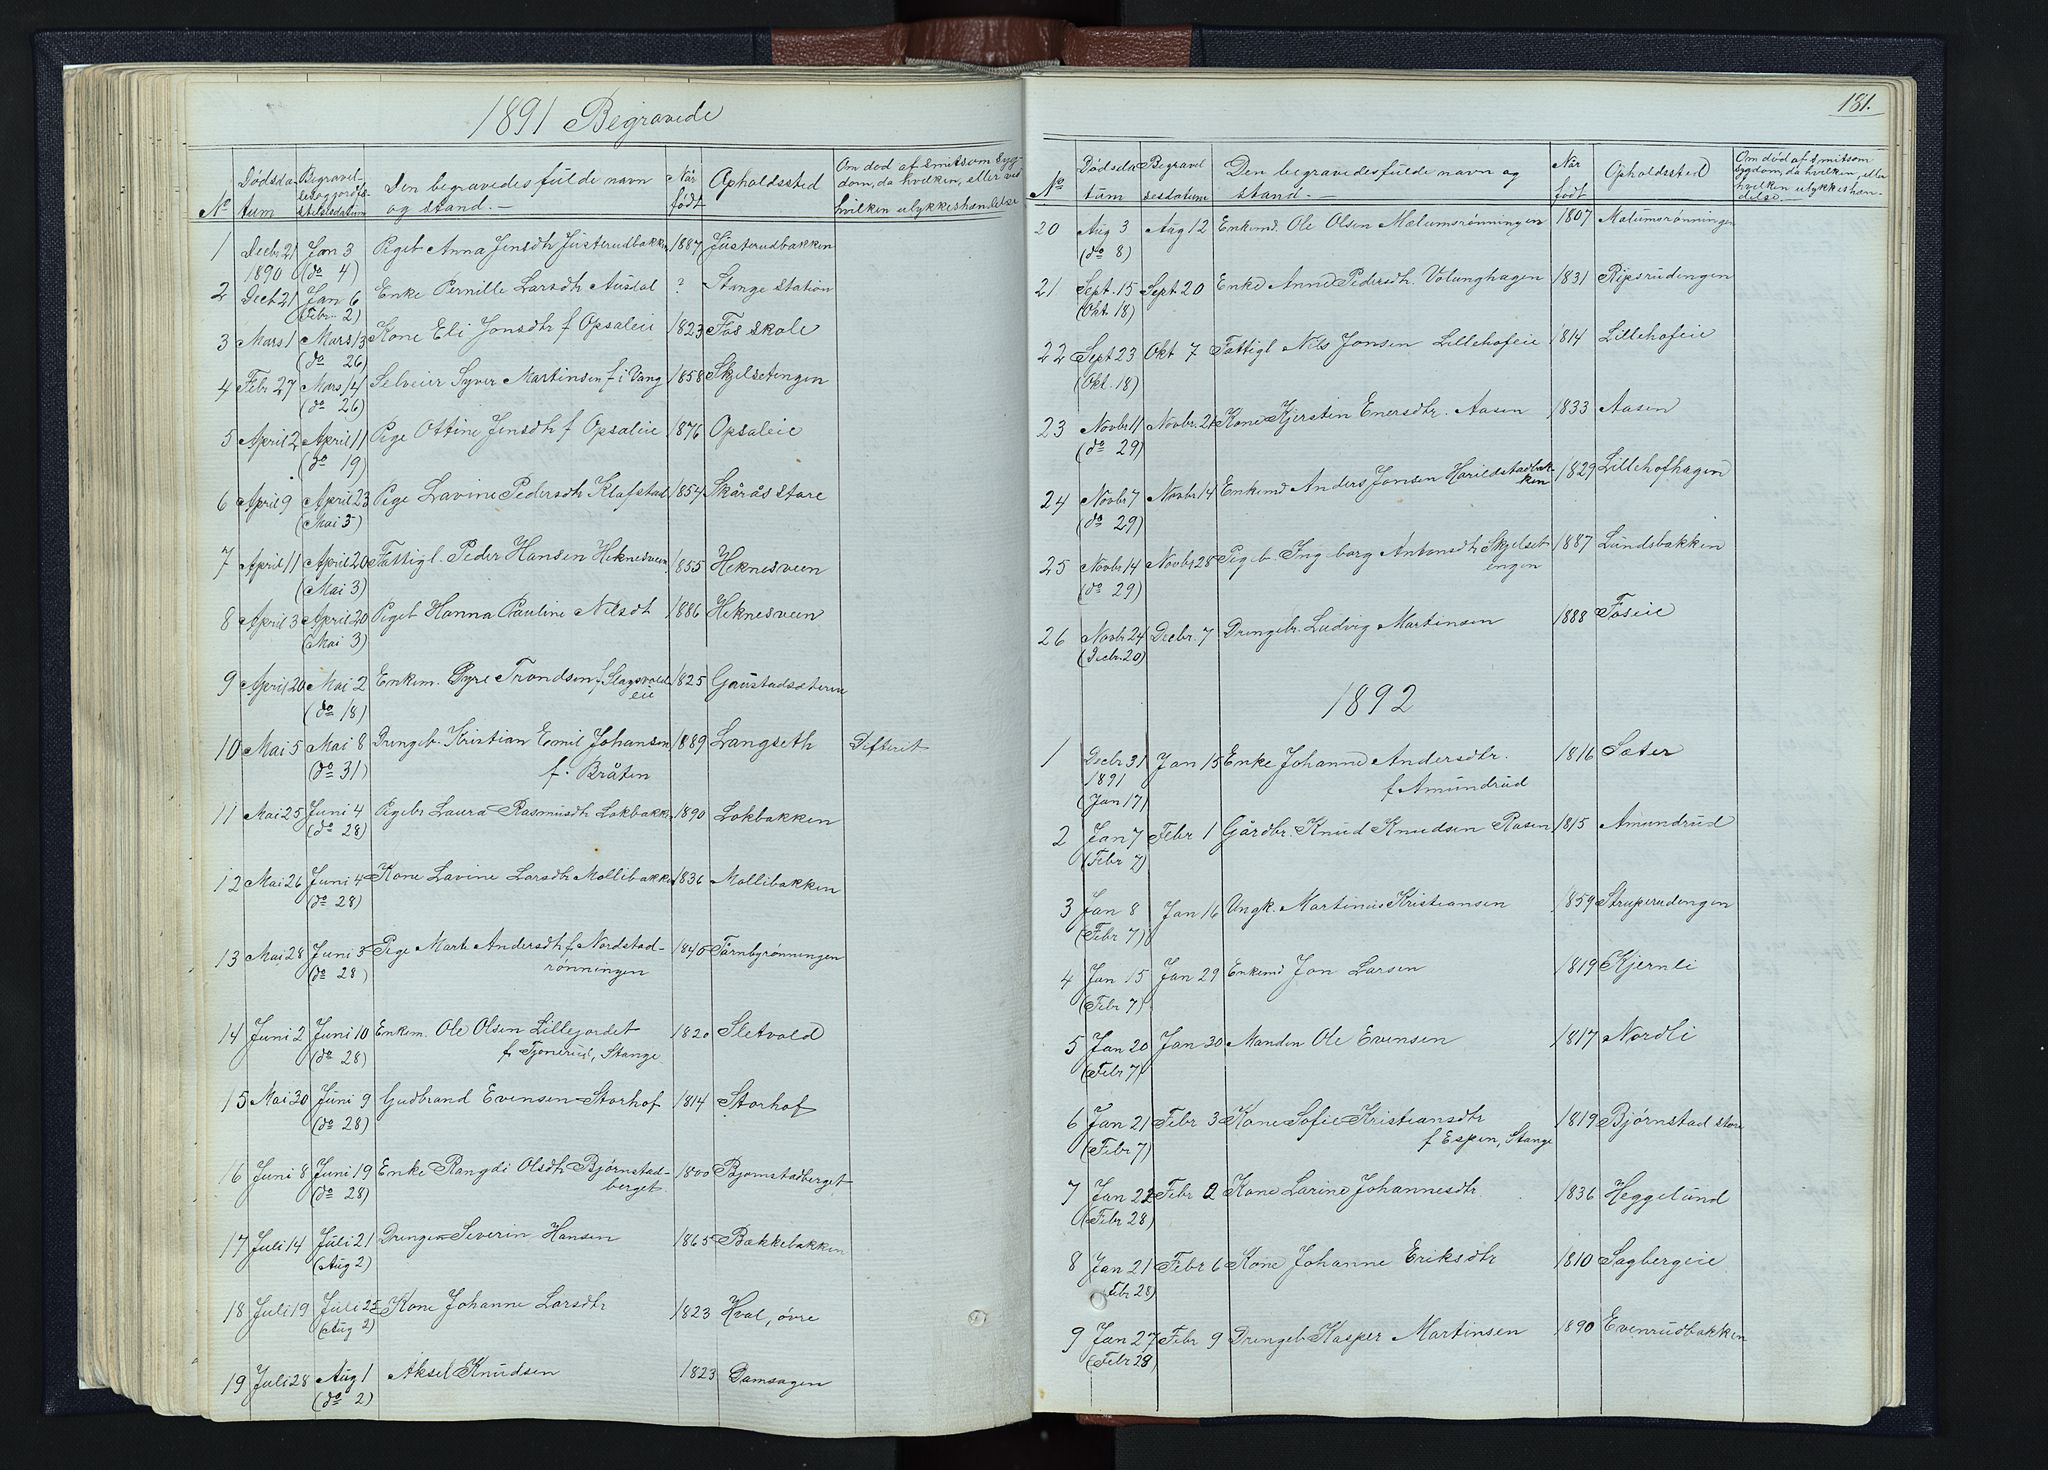 1891 Begravede
No Dødsdatum Begravelses og jordfæstelsesdatum Den begravedes fulde navn og stand. Når født Opholdssted Om død af smitsom sygdom, da hvilken, eller ved hvilken ulykkeshændelse
1 Decbr 21 1890 Jan 3 (do 4) Pigeb Anna Jensdtr Justerudbakken 1887 Justerudbakken
2 Decb 21 Jan 6 (Febr. 2) Enke Pernille Larsdtr Ausdal ? Stange Station
3 Mars 1 Mars 13 (do 26) Kone Eli Jonsdtr f Opsaleie 1823 Fos skole
4 Febr 27 Mars 14 (do 26) Selveier Syver Martinsen f i Vang 1858 Skjelsetengen
5 April 2 April 11 (do 19) Pige Ottine Jensdtr f Opsaleie 1876 Opsaleie
6 April 9 April 23 (Mai 3) Pige Lavine Pedersdtr Klafstad 1854 Skårås store
7 April 11 April 20 (Mai 3) Fattigl. Peder Hansen Heknesveen 1855 Heknesveen
8 April 3 April 20 (Mai 3) Pigeb Hanna Pauline Nilsdt 1886 Heknesveen
9 April 20 Mai 2 (do 18) Enkem. Gyre Trondsen f Slagsvold-
eie 1825 Gaustadsæteren
10 Mai 5 Mai 8 (do 31) Drengeb. Kristian Emil Johansen 1889 Langseth Difterit
f. Bråten
11 Mai 25 Juni 4 (do 28) Pigebr Laura Rasmusdtr Lokbakken 1890 Lokbakken
12 Mai 26 Juni 4 (do 28) Kone Lavine Larsdtr Mollibakken 1836 Mollibakken
13 Mai 28 Juni 3 (do 28) Pige Marte Andersdtr f Nordstad- 1840 Tårnbyrønningen
rønningen
14 Juni 2 Juni 10 (do 28) Enkem. Ole Olsen Lillejordet 1820 Sletvold
f Tjonerud, Stange
15 Mai 30 Juni 9 (do 28) Gudbrand Evensen Storhof 1814 Storhof
16 Juni 8 Juni 19 (do 28) Enke Rangdi Olsdtr Bjørnstad- 1800 Bjornstadberget
berget
17 Juli 14 Juli 21 (Aug 2) Drengen Severin Hansen 1865 Bækkebakken
18 Juli 19 Juli 25 (Aug 2) Kone Johanne Larsdtr 1823 Hval, øvre
19 Juli 28 Aug 1 (do 2) Aksel Knudsen 1823 Damsagen
181.
No Dødsdatum Begravelsesdatum Den begravedes fulde navn og stand. Når født Opholdssted Om død af smitsom sygdom, da hvilken, eller hvilken ulykkeshændelse.
20 Aug 3 (do 8) Aug 12 Enkemd. Ole Olsen Mælumsrønningen 1807 Mælumsrønningen
21 Sept. 15 (Okt 18) Sept 20 Enke Anne Pedersdtr. Volunghagen 1831 Ripsrudengen
22 Sept 23 (Okt. 18) Okt 7 Fattigl Nils Jonsen Lillehofeie 1814 Lillehofeie
23 Novbr 11 (do 29) Novbr. 21 Kone Kjersten Enersdtr. Aasen 1833 Aasen
24 Novbr 7 (do 29) Novbr 14 Enkemd Anders Jonsen Harildstadbak-
ken 1829 Lillehofhagen
25 Novbr 14 (do 29) Novbr 28 Pigeb. Ingeborg Antonsdtr Skjelset
engen 1887 Lundsbakken
26 Novbr 24 (Decbr. 20) Decbr. 7 Drengebr. Ludvig Martinsen 1888 Foseie
1892
1 Decbr 31 1891 (Jan 17) Jan 15 Enke Johanne Andersdtr. 1816 Sæter
f Amundrud
2 Jan 7 (Febr 7) Febr 1 Gårdbr. Knud Knudsen Rasen 1815 Amundrud
3 Jan 8 (Febr 7) Jan 16 Ungk. Martinus Kristiansen 1859 Struperudengen
4 Jan 15 (Febr 7) Jan 29 Enkemd Jon Larsen 1819 Kjernli
5 Jan 20 (Febr 7) Jan 30 Manden Ole Evensen 1817 Nordli
6 Jan 21 (Febr 7) Febr 3 Kone Sofie Kristiansdtr 1819 Bjørnstad store
f Espen, Stange
7 Jan 22 (Febr 28) Febr 2 Kone Larine Johannesdtr 1836 Heggelund
8 Jan 21 (Febr 28) Febr 6 Kone Johanne Eriksdtr 1810 Sagbergeie
9 Jan 27 (Febr 28) Febr 9 Drengeb Kasper Martinsen 1890 Evenrudbakken